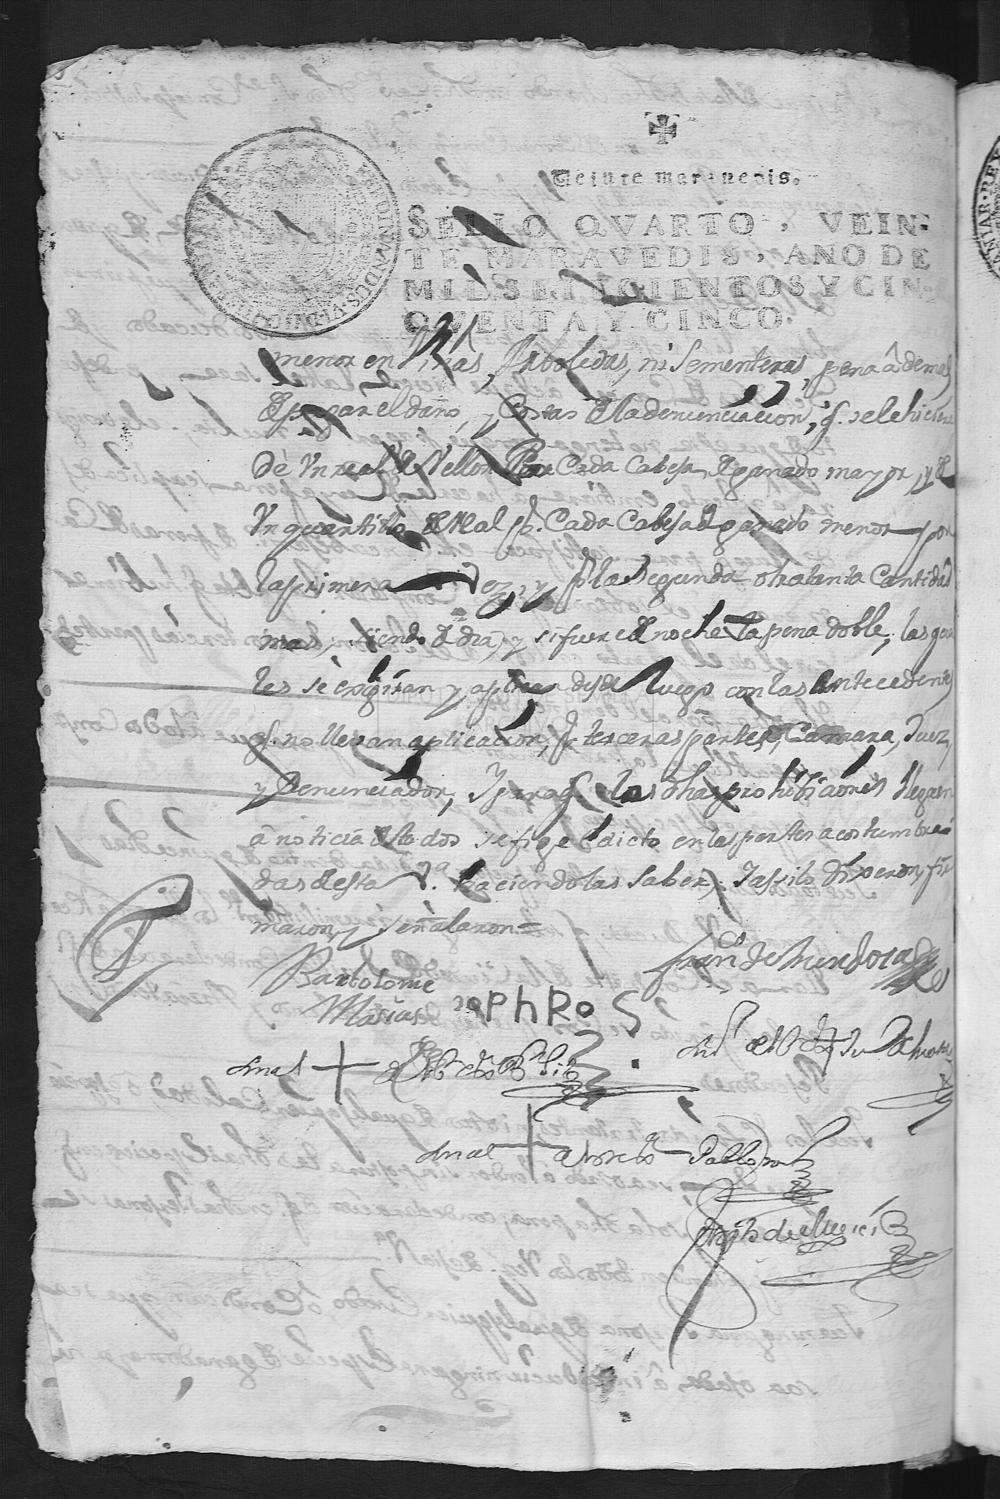 Veinte maravedis.
SELLO QVARTO, VEIN-
TE MARAVEDIS, AÑO DE
MIL SETECIENTOS Y CIN-
QVENTA Y CINCO.
menor en Viñas, Arboledas, ni Sementeras, pena â demas
de pagar el daño, y Costas de la denunciacion, q. se le hiciere
de Vn real de Vellon Por Cada Cabeza de ganado mayor, y de
Vn quartillo de real pr. Cada Cabeza de ganado menor por
la primera Vez, y pr. la Segunda otra tanta Cantidad
mas, siendo de dia, y si fuere de noche la pena doble, las qua
les se exigiran y aplican desde luego con las Antecedentes
q. no llevan aplicacion, Pr. terceras partes, Camara, Juez,
y Denunciador, Y para q. las dhas prohibiziones lleguen
â noticia de todos se fige edicto en las partes acostumbra
das desta Va. haciendolas saber, Y assi lo dixeron, fir
maron, y señalaron=
Franco. de Mendoza
Bartolome
Masias
Señal + de
Señal + de
Señal + de Pablo